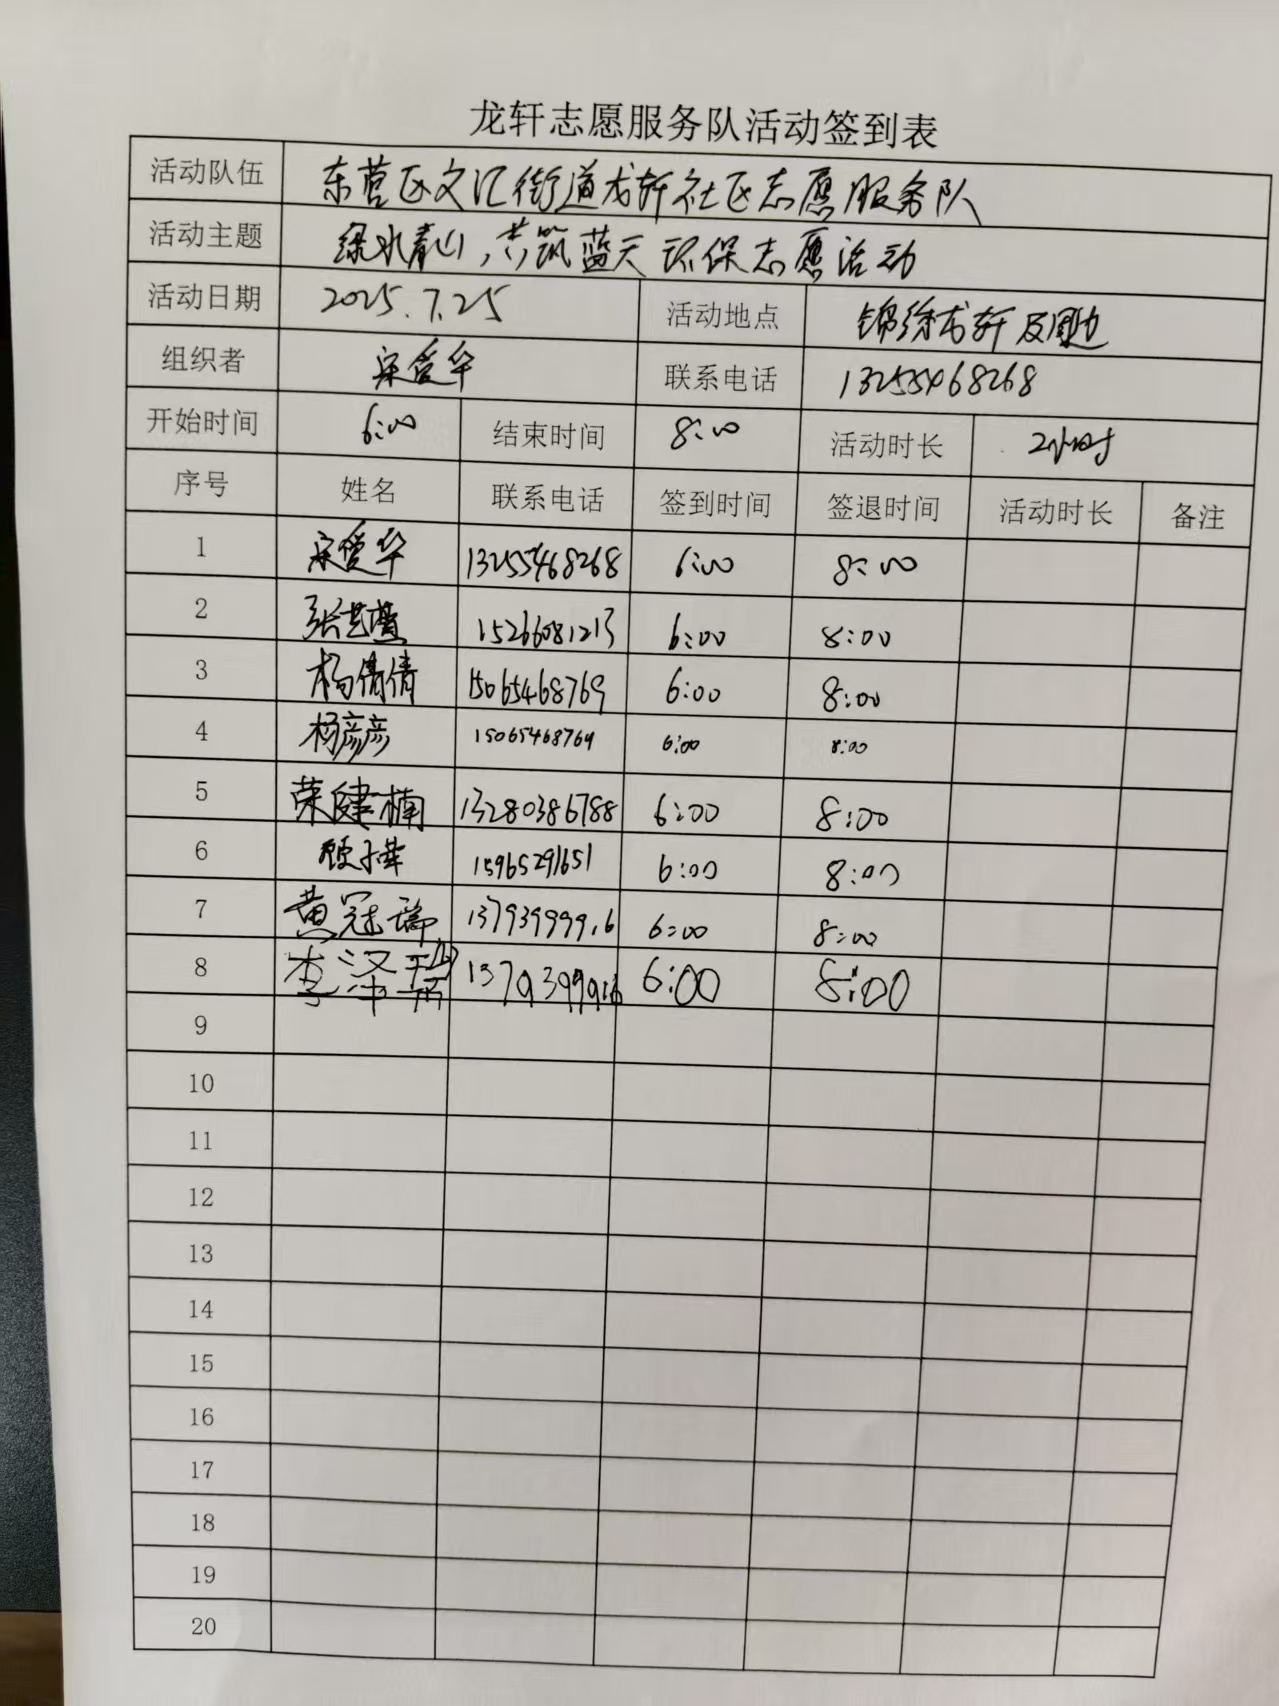 龙轩志愿服务队活动签到表
活动队伍 东营区文汇街道龙轩社区志愿服务队
活动主题 绿水青山，共筑蓝天环保志愿活动
活动日期 2025.7.25 活动地点 锦绣龙轩及周边
组织者 宋爱华 联系电话 13255468268
开始时间 6:00 结束时间 8:00 活动时长 2小时
序号 姓名 联系电话 签到时间 签退时间 活动时长 备注
1 宋爱华 13255468268 6:00 8:00
2 张艺 15266081213 6:00 8:00
3 杨倩倩 15065468769 6:00 8:00
4 杨彦彦 15065468769 6:00 8:00
5 荣健楠 13280386788 6:00 8:00
6 15965291651 6:00 8:00
7 黄冠瑞 13793999916 6:00 8:00
8 李泽瑞 6:00 8:00
9
10
11
12
13
14
15
16
17
18
19
20